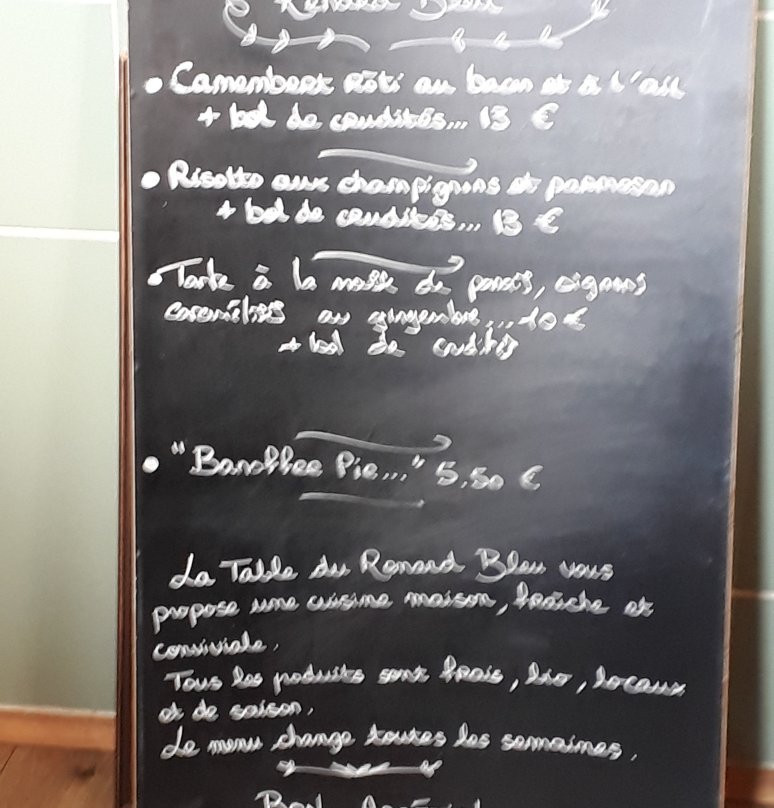 Renard Bleu
• Camembert rôti au bacon et à l'ail
+ bol de crudités... 13 €
• Risotto aux champignons et parmesan
+ bol de crudités... 13 €
• Tarte à la masse de panais, oignons
caramélisés au gingembre... 10 €
+ bol de crudités
• "Banoffee Pie..." 5,50 €
La Table du Renard Bleu vous
propose une cuisine maison, fraîche et
conviviale.
Tous les produits sont frais, bio, locaux
et de saison.
Le menu change toutes les semaines.
Bon